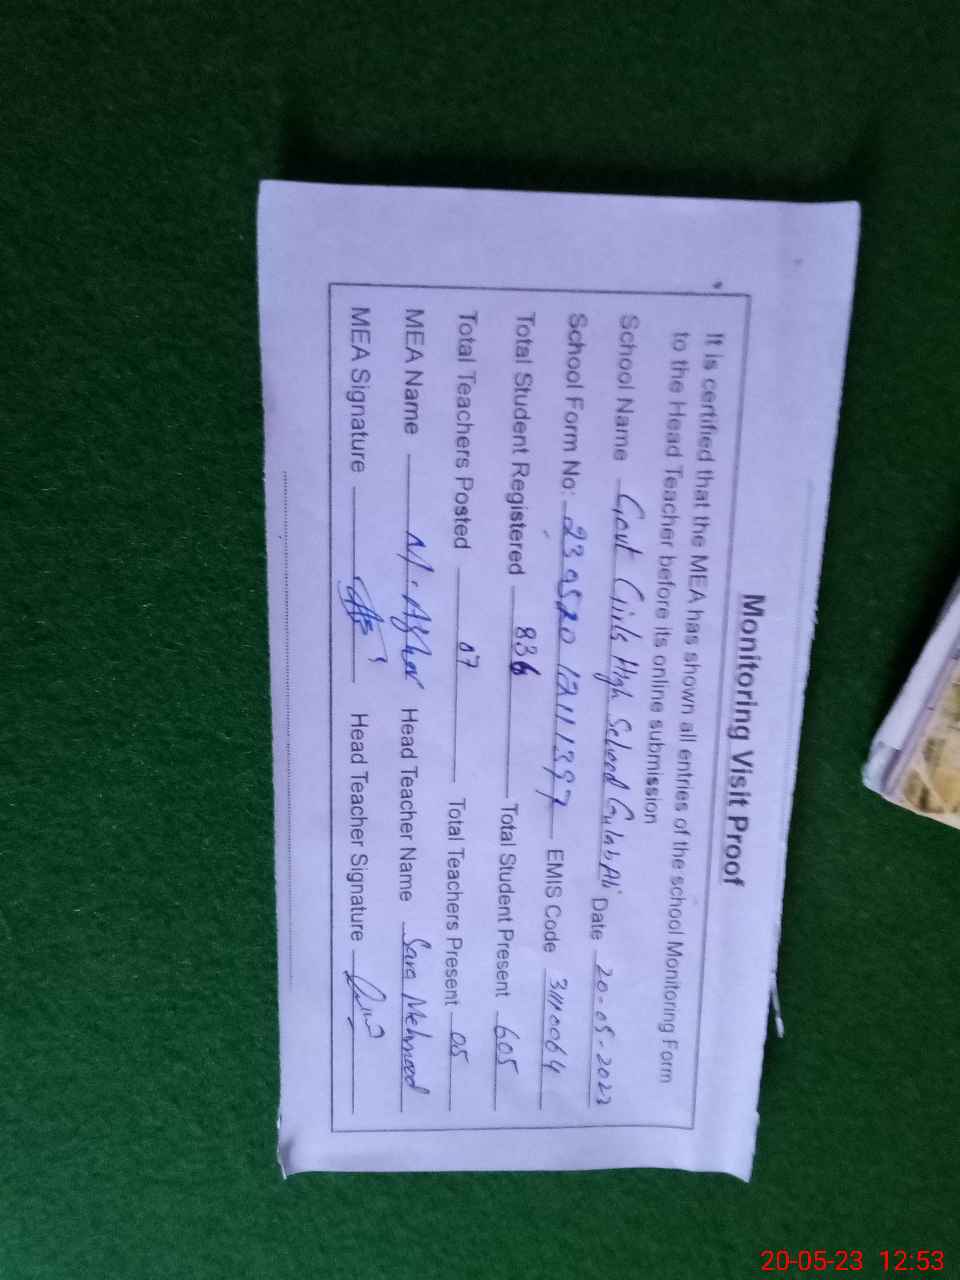 Monitoring Visit Proof
It is certified that the MEA has shown all entries of the school Monitoring Form
to the Head Teacher before its online submission
School Name Govt Girls High School Gulab Ali Date 20-05-2023
School Form No: 2309520 1211397 EMIS Code 31110064
Total Student Registered 836 Total Student Present 605
Total Teachers Posted 07 Total Teachers Present 05
MEA Name M. Asghar Head Teacher Name Sara Mehmood
MEA Signature Head Teacher Signature
20-05-23 12:53